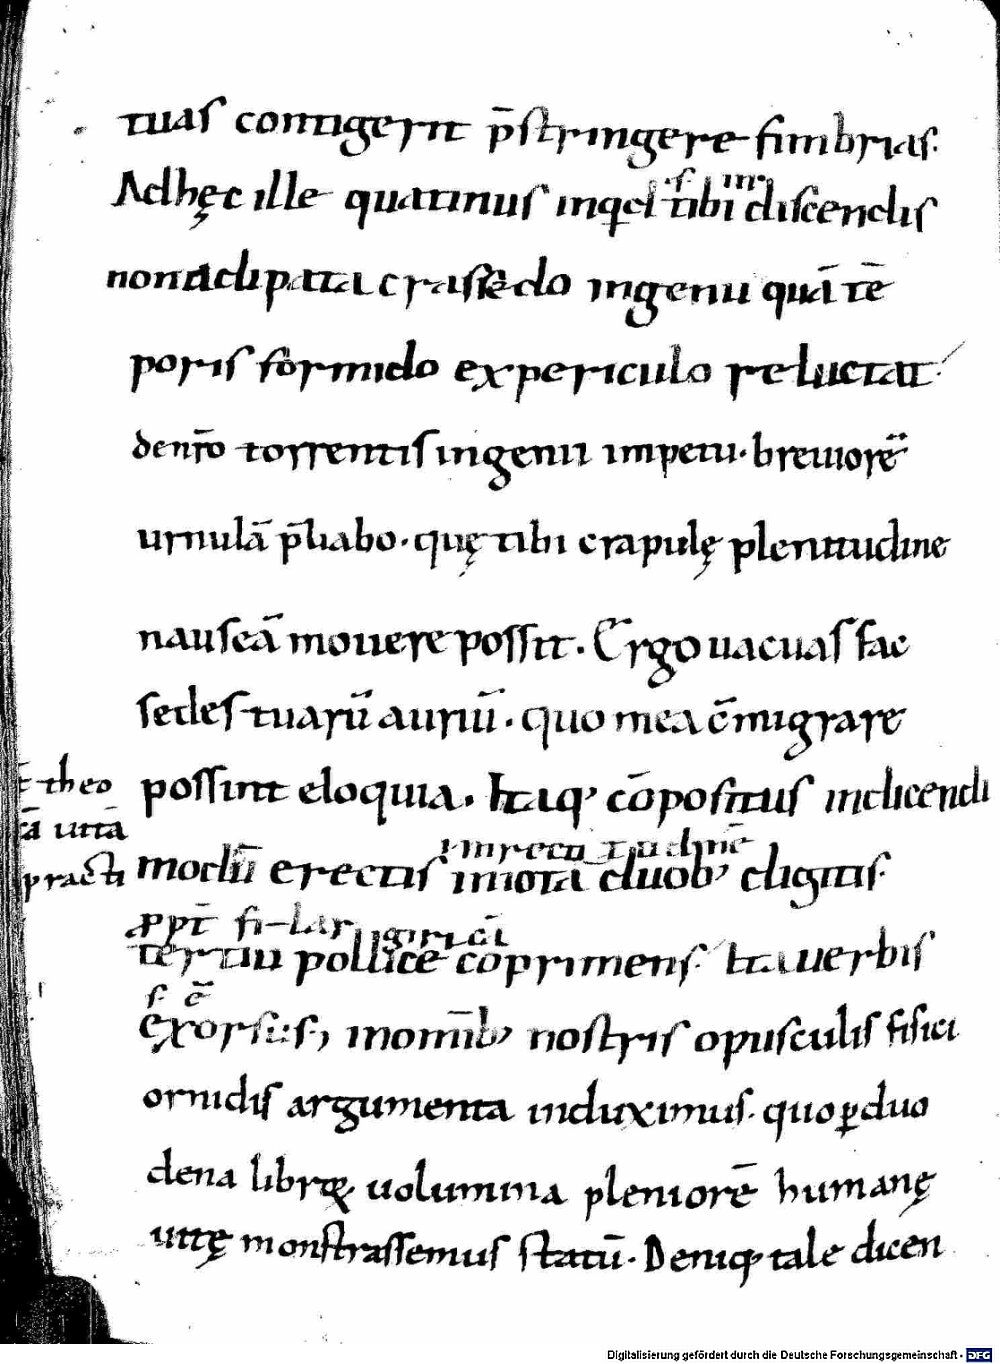 tuas contigerit p̄stringere fimbrias.
Adhęc ille quatinus inqđ tibi discendis
s. in.
non adipata crassedo ingenii quā tē
poris formido expericulo reluctat
denr̄o torrentis ingenii impetu. breuiorē
urnulā p̄libabo. quę tibi crapulę plenitudine
nauseā mouere possit. Ergo uacuas fac
sedes tuarū auriū. quo mea ēmigrare
possint eloquia. Itaq; cōpositus indicendi
theo
uita
practi
modū erectis īmota duob; digitis.
tertiū pollice cōprimens. Ita uerbis
s. ē
exorsus; inomīb; nostris opusculis fisici
ornidis argumenta induximus. quo ꝑduo
dena librꝝ uolumina pleniorē humanę
uitę monstrassemus statū. Deniq; tale dicen
Digitalisierung gefördert durch die Deutsche Forschungsgemeinschaft - DFG